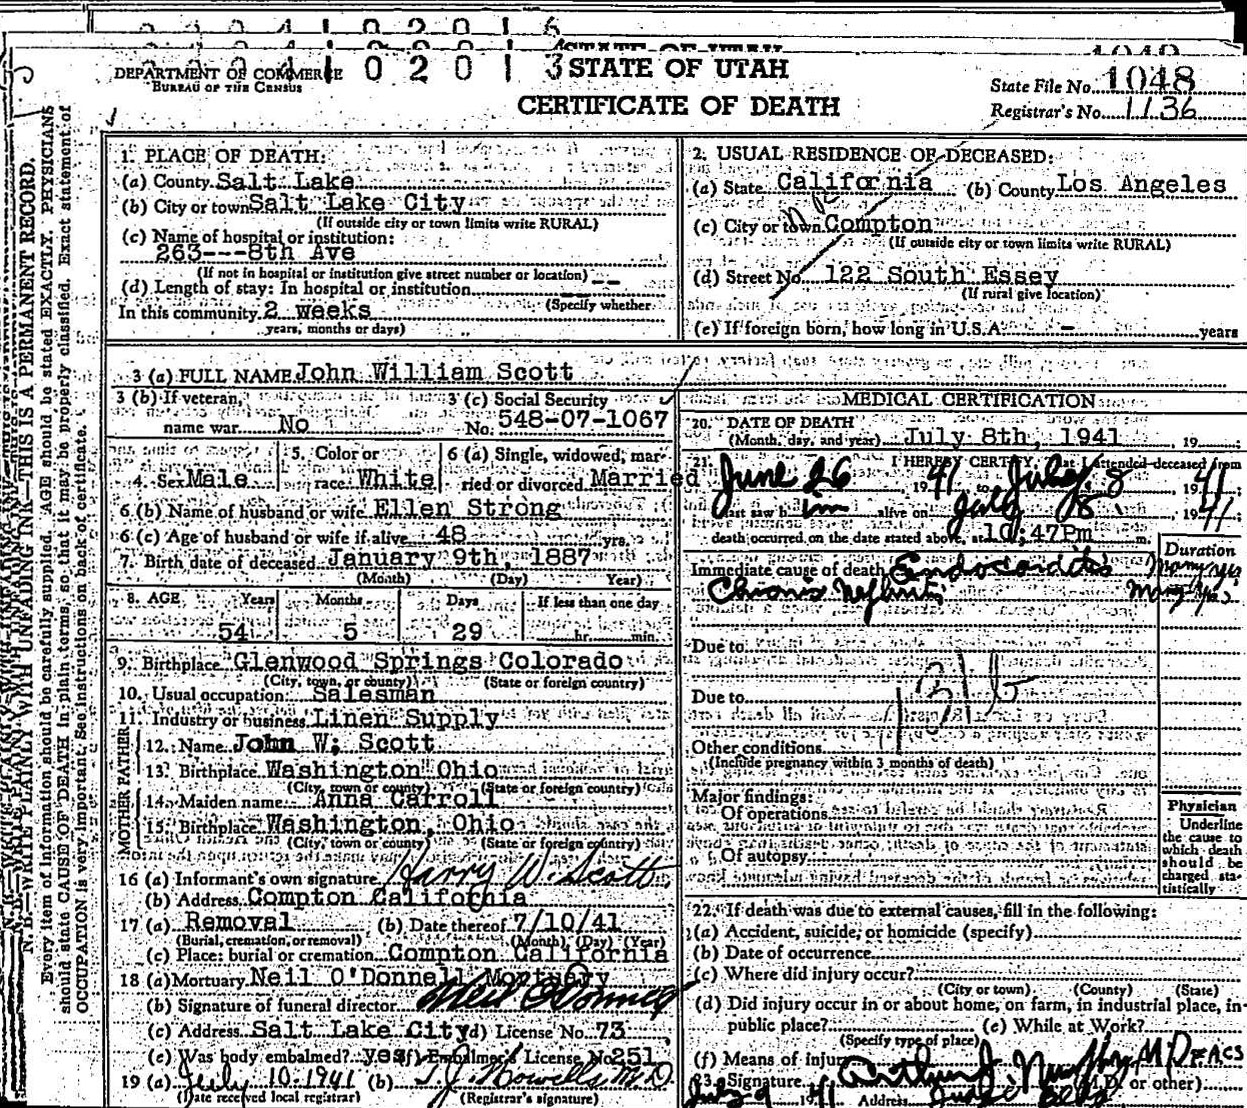 0 2 0 1 6
STATE OF UTAH
1048
DEPARTMENT OF COMMERCE
BUREAU OF THE CENSUS
4 1 0 2 0 1 3
STATE OF UTAH
CERTIFICATE OF DEATH
State File No. 1048
Registrar's No. 1136
N. B.—WRITE PLAINLY WITH UNFADING INK—THIS IS A PERMANENT RECORD.
Every item of information should be carefully supplied. AGE should be stated EXACTLY. PHYSICIANS
should state CAUSE OF DEATH in plain terms, so that it may be properly classified. Exact statement of
OCCUPATION is very important. See instructions on back of certificate.
1. PLACE OF DEATH:
(a) County Salt Lake
(b) City or town Salt Lake City
(If outside city or town limits write RURAL)
(c) Name of hospital or institution:
263---8th Ave
(If not in hospital or institution give street number or location)
(d) Length of stay: In hospital or institution --
(Specify whether
In this community 2 weeks
years, months or days)
2. USUAL RESIDENCE OF DECEASED:
(a) State California (b) County Los Angeles
(c) City or town Compton
(If outside city or town limits write RURAL)
(d) Street No. 122 South Essey
(If rural give location)
(e) If foreign born, how long in U.S.A. - years
3 (a) FULL NAME John William Scott
3 (b) If veteran, name war No
3 (c) Social Security No. 548-07-1067
4. Sex Male
5. Color or race White
6 (a) Single, widowed, married or divorced Married
6 (b) Name of husband or wife Ellen Strong
6 (c) Age of husband or wife if alive 48 yrs.
7. Birth date of deceased January 9th, 1887
(Month) (Day) Year)
8. AGE Years Months Days If less than one day
54 5 29 hr. min.
9. Birthplace Glenwood Springs Colorado
(City, town, or county) (State or foreign country)
10. Usual occupation Salesman
11. Industry or business Linen Supply
FATHER
12. Name John W. Scott
13. Birthplace Washington Ohio
(City, town or county) (State or foreign country)
MOTHER
14. Maiden name Anna Carroll
15. Birthplace Washington, Ohio
(City, town or county) (State or foreign country)
16 (a) Informant's own signature Harry W. Scott
(b) Address Compton California
17 (a) Removal (b) Date thereof 7/10/41
(Burial, cremation, or removal) (Month) (Day) (Year)
(c) Place: burial or cremation Compton California
18 (a) Mortuary Neil O'Donnell Mortuary
(b) Signature of funeral director Neil O'Donnell
(c) Address Salt Lake City (d) License No. 73
(e) Was body embalmed? yes (f) Embalmer's License No. 251
19 (a) July 10-1941 (b) T. J. Howells M.D.
(Date received local registrar) (Registrar's signature)
MEDICAL CERTIFICATION
20. DATE OF DEATH
(Month, day, and year) July 8th, 1941, 19
21. I HEREBY CERTIFY, that I attended deceased from
June 26 1941 to July 8 1941
last saw him alive on July 8, 1941
death occurred on the date stated above, at 10:47Pm m.
Duration
Immediate cause of death Endocarditis Many yrs
Chronic Nephritis Many yrs.
Due to
131 b
Due to
Other conditions
(Include pregnancy within 3 months of death)
Major findings:
Of operations
Of autopsy
Physician
Underline
the cause to
which death
should be
charged sta-
tistically
22. If death was due to external causes, fill in the following:
(a) Accident, suicide, or homicide (specify)
(b) Date of occurrence
(c) Where did injury occur?
(City or town) (County) (State)
(d) Did injury occur in or about home, on farm, in industrial place, in
public place? (e) While at Work?
(Specify type of place)
(f) Means of injury
23. Signature Arthur J. Murphy M D FACS
(M.D. or other)
July 9 1941 Address